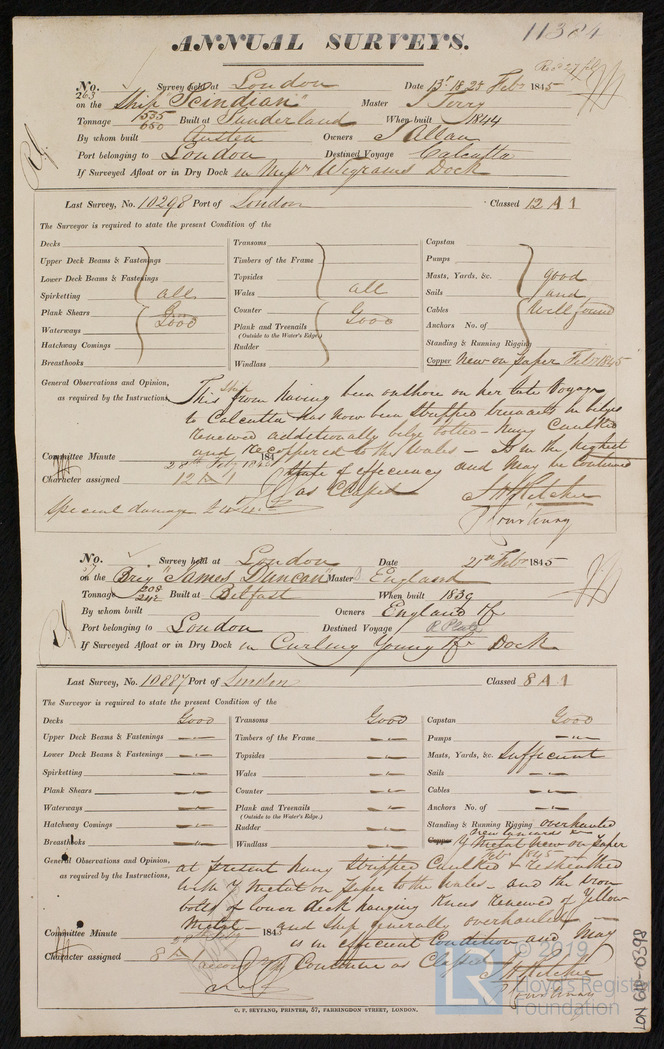 11384
ANNUAL SURVEYS.
No. 263 Survey held at London Date 13th 18 25 Febr 1845
on the Ship "Scindian" Master J Torry
Tonnage 535 650 Built at Sunderland When built 1844
By whom built Austen Owners J Allan
Port belonging to London Destined Voyage Calcutta
If Surveyed Afloat or in Dry Dock in Messrs Wigrams Dock
Last Survey, No. 10298 Port of London Classed 12 A 1
The Surveyor is required to state the present Condition of the
Decks Transoms Capstan
Upper Deck Beams & Fastenings Timbers of the Frame Pumps
Lower Deck Beams & Fastenings Topsides Masts, Yards, &c. good
Spirketting all Wales all Sails and
Plank Shears Good Counter Good Cables Well found
Waterways Plank and Treenails Anchors No. of
(Outside to the Water's Edge.)
Hatchway Comings Rudder Standing & Running Rigging
Breasthooks Windlass Copper New on paper Febr 1845
General Observations and Opinion, as required by the Instructions, This ship from having been onshore on her late Voyage
to Calcutta has now been stripped in bilges
renewed additionally bilge bolted - hung Caulked
and Recoppered to the Wales - Is in the highest
Committee Minute 28th Feby 1845
state of efficiency and may be continued
Character assigned 12 A 1
as Classed J H Ritchie
Special damage
No. Survey held at London Date 21st Febr 1845
on the Brig "James Duncan" Master England
Tonnage 208 242 Built at Belfast When built 1839
By whom built Owners England
Port belonging to London Destined Voyage R Plate
If Surveyed Afloat or in Dry Dock in Curling Young & Co Dock
Last Survey, No. 10887 Port of London Classed 8 A 1
The Surveyor is required to state the present Condition of the
Decks Good Transoms Good Capstan Good
Upper Deck Beams & Fastenings -"- Timbers of the Frame -"- Pumps -"-
Lower Deck Beams & Fastenings -"- Topsides -"- Masts, Yards, &c. Sufficient
Spirketting -"- Wales -"- Sails -"-
Plank Shears -"- Counter -"- Cables -"-
Waterways -"- Plank and Treenails -"- Anchors No. of -"-
(Outside to the Water's Edge.)
Hatchway Comings -"- Rudder -"- Standing & Running Rigging overhauled
Breasthooks -"- Windlass -"- Copper Y Metal New on paper
Febr 1845
General Observations and Opinion, as required by the Instructions, at present hung stripped Caulked & resheathed
with Y Metal on paper to the Wales - and the iron
bolts of lower deck hanging knees renewed of Yellow
Metal - and ship generally overhauled -
Committee Minute 28th Feby 1845
is in efficient Condition and may
Character assigned 8 A 1
Continue as Classed J H Ritchie
C. F. SEYFANG, PRINTER, 57, FARRINGDON STREET, LONDON.
© 2019
LR Lloyd's Register
Foundation
LON 619-0398